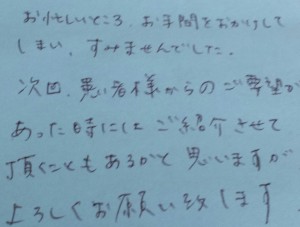 お忙しいところ、お手間をおかけして
しまい、すみませんでした。
次回、患者様からのご要望が
あった時にはご紹介させて
頂くこともあるかと思いますが
よろしくお願い致します